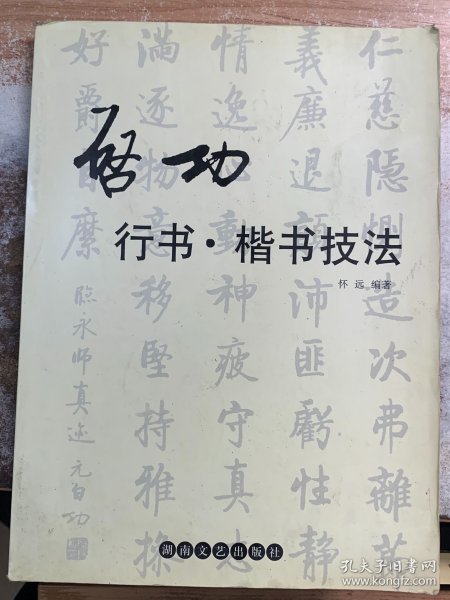 启功
行书·楷书技法
怀远 编著
仁慈隱惻造次弗離節
義廉退顛沛匪虧性靜
情逸心動神疲守真志
滿逐物意移堅持雅操
好爵自縻
臨永師真迹 元白功
湖南文艺出版社
孔夫子旧书网
www.kongfz.com